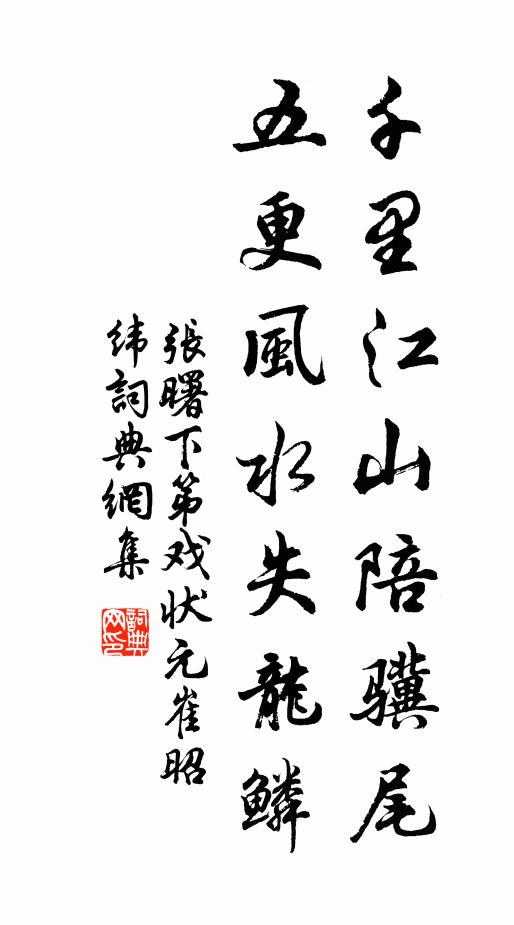 千里江山陪骥尾
五更風水失龍鱗
張曙下第戏状元崔昭
緯詞典網集
詞典
网印